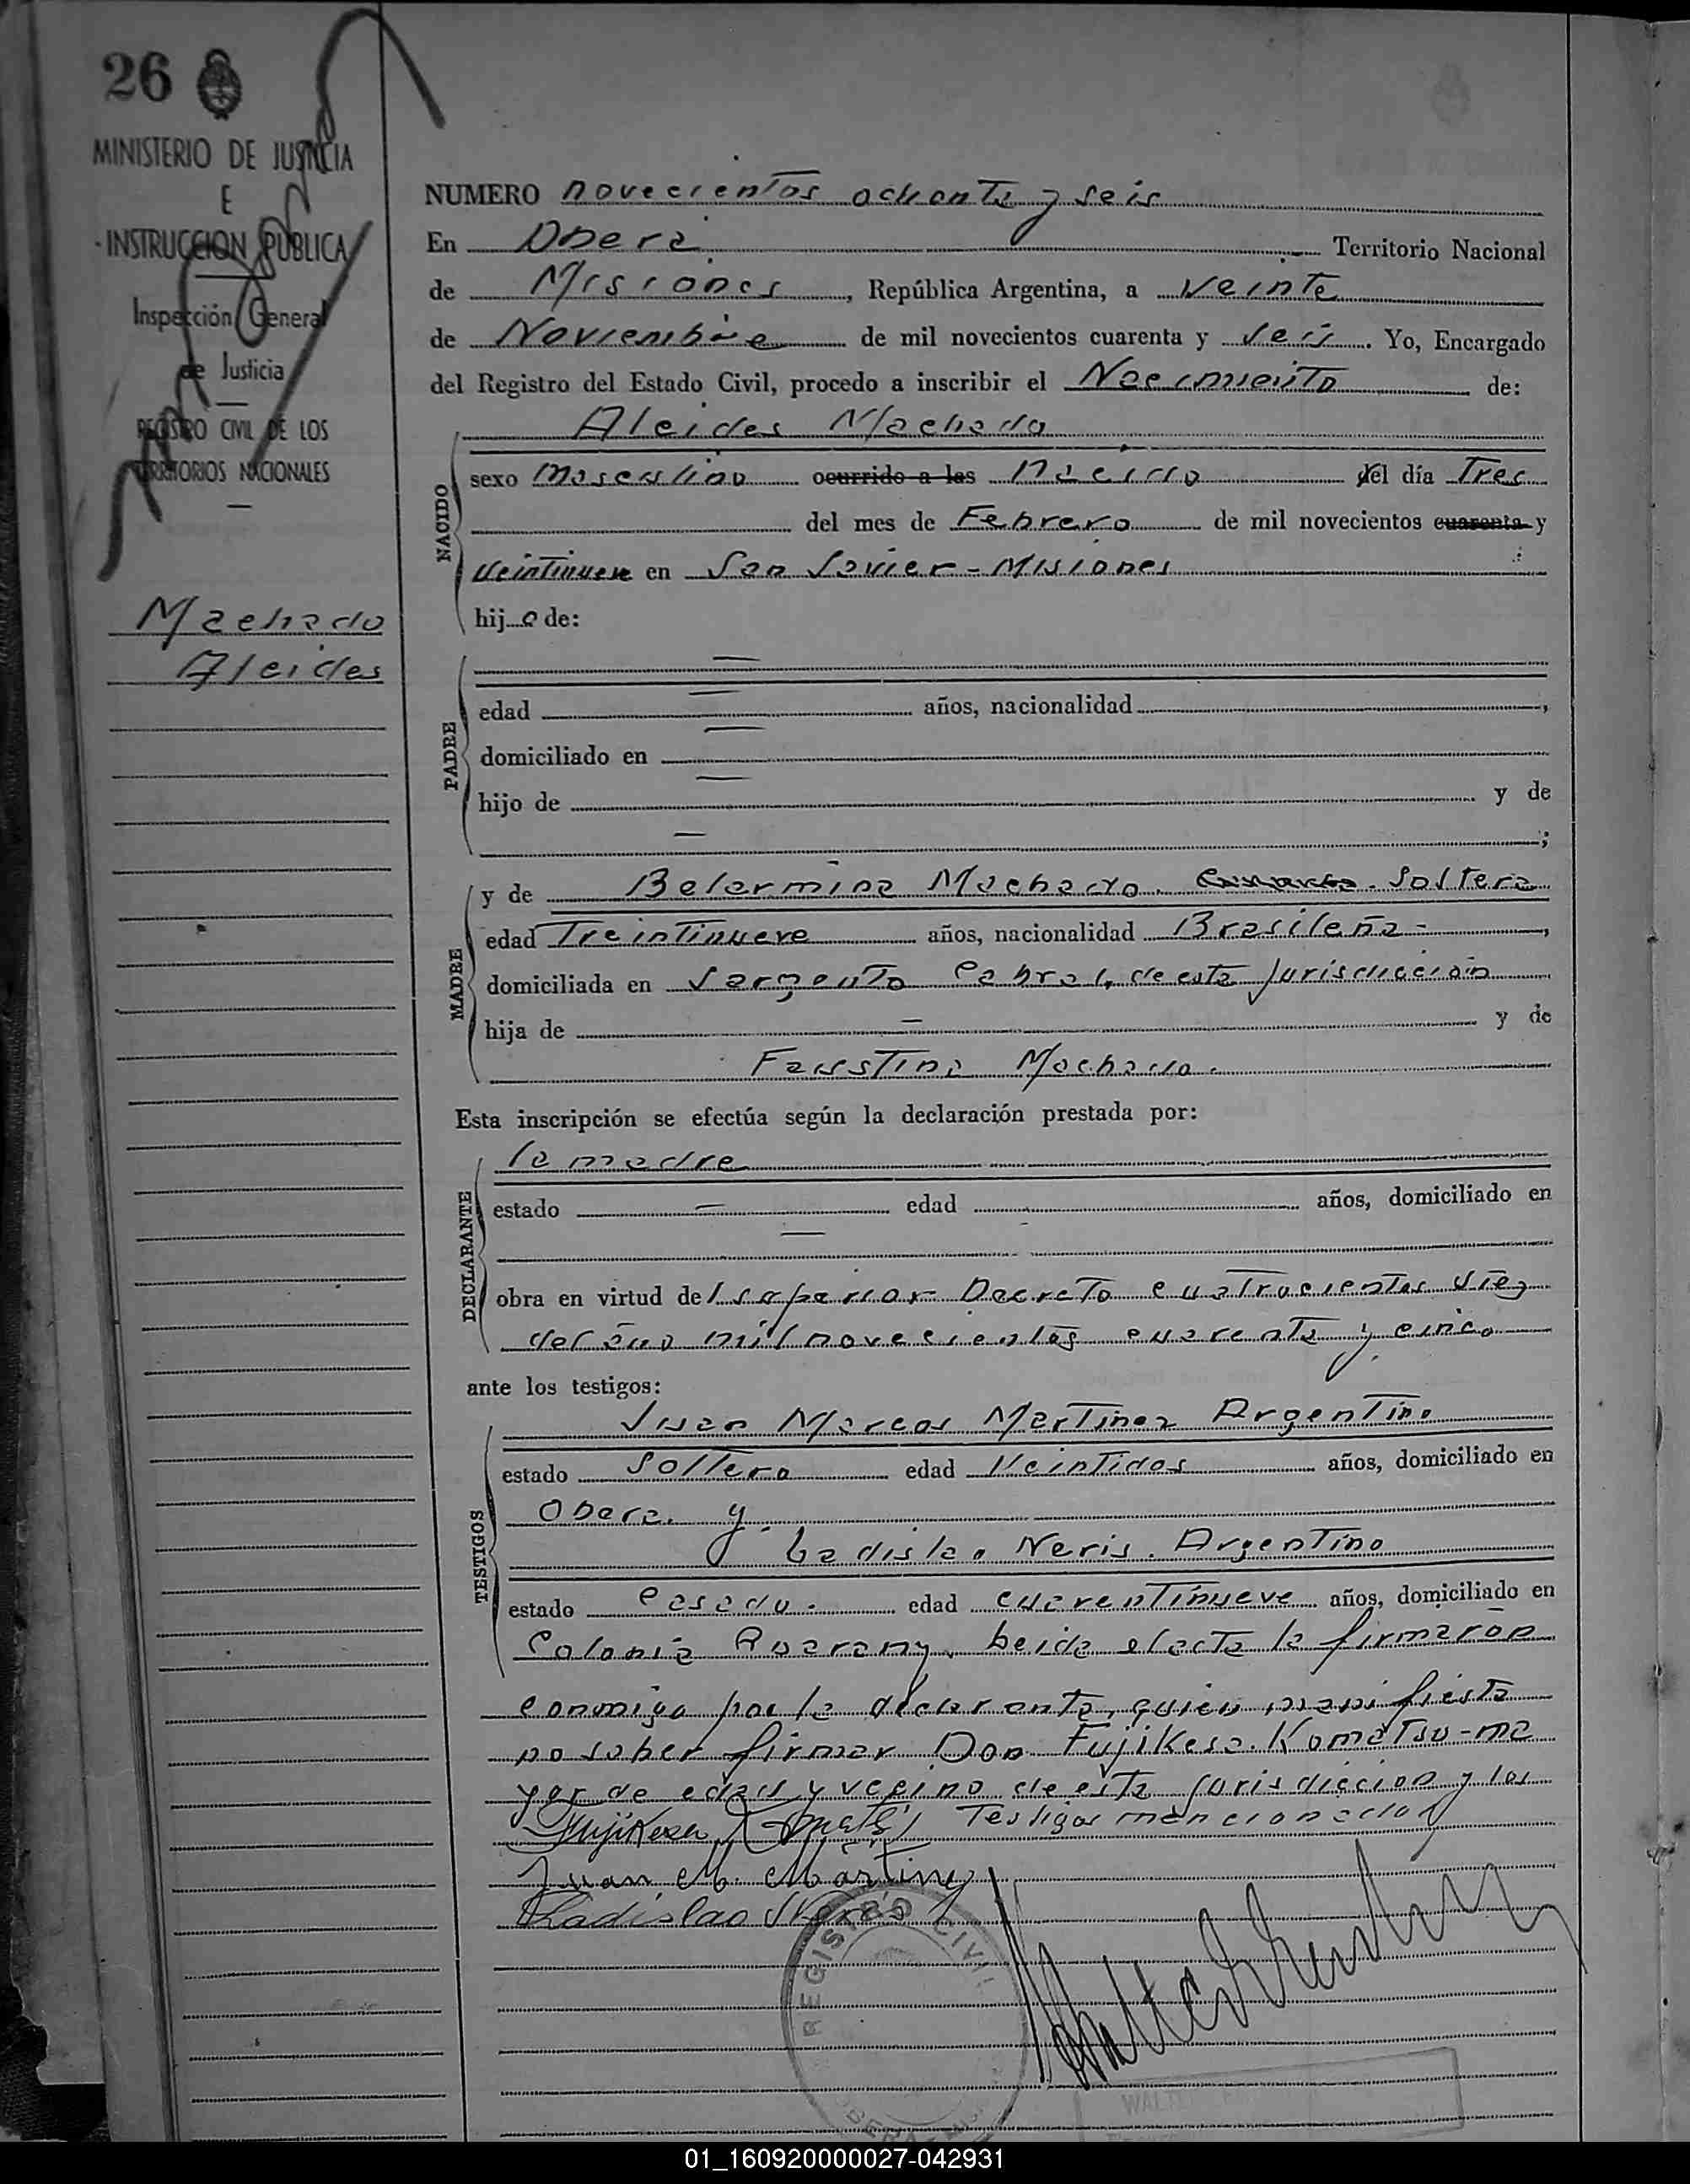 26
MINISTERIO DE JUSTICIA
E
INSTRUCCION PUBLICA
Inspección General
de Justicia
REGISTRO CIVIL DE LOS
TERRITORIOS NACIONALES
Machado
Alcides
NUMERO novecientos ochenta y seis
En Oberá Territorio Nacional
de Misiones, República Argentina, a veinte
de Noviembre de mil novecientos cuarenta y seis. Yo, Encargado
del Registro del Estado Civil, procedo a inscribir el Nacimiento de:
Alcides Machado
NACIDO
sexo masculino ocurrido a las nacido del día Tres
del mes de Febrero de mil novecientos cuarenta y
veintinueve en San Javier - Misiones
hijo de:
PADRE
edad años, nacionalidad,
domiciliado en
hijo de y de
;
MADRE
y de Belarmina Machado. Soltera
edad Treintinueve años, nacionalidad Brasileña -,
domiciliada en Sargento Cabral, de esta jurisdicción
hija de — y de
Faustina Machado.
Esta inscripción se efectúa según la declaración prestada por:
DECLARANTE
la madre
estado — edad años, domiciliado en
—
obra en virtud del superior Decreto cuatrocientos diez
del año mil novecientos cuarenta y cinco
ante los testigos:
TESTIGOS
Juan Marcos Martinez Argentino
estado Soltero edad Veintidos años, domiciliado en
Oberá. y
Ladislao Neris. Argentino
estado Casado. edad cuarentinueve años, domiciliado en
Colonia Guarany. Leida el acta la firmarón
conmigo por la declarante, quien manifiesta
no saber firmar Don Fujikesa Komatsu - ma
yor de edad y vecino de esta jurisdiccion y los
Testigos mencionados
Fujikesa Komatsu
Juan M. Martinez
Ladislao Neris
REGISTRO CIVIL
OBERA
WALT
01_160920000027-042931